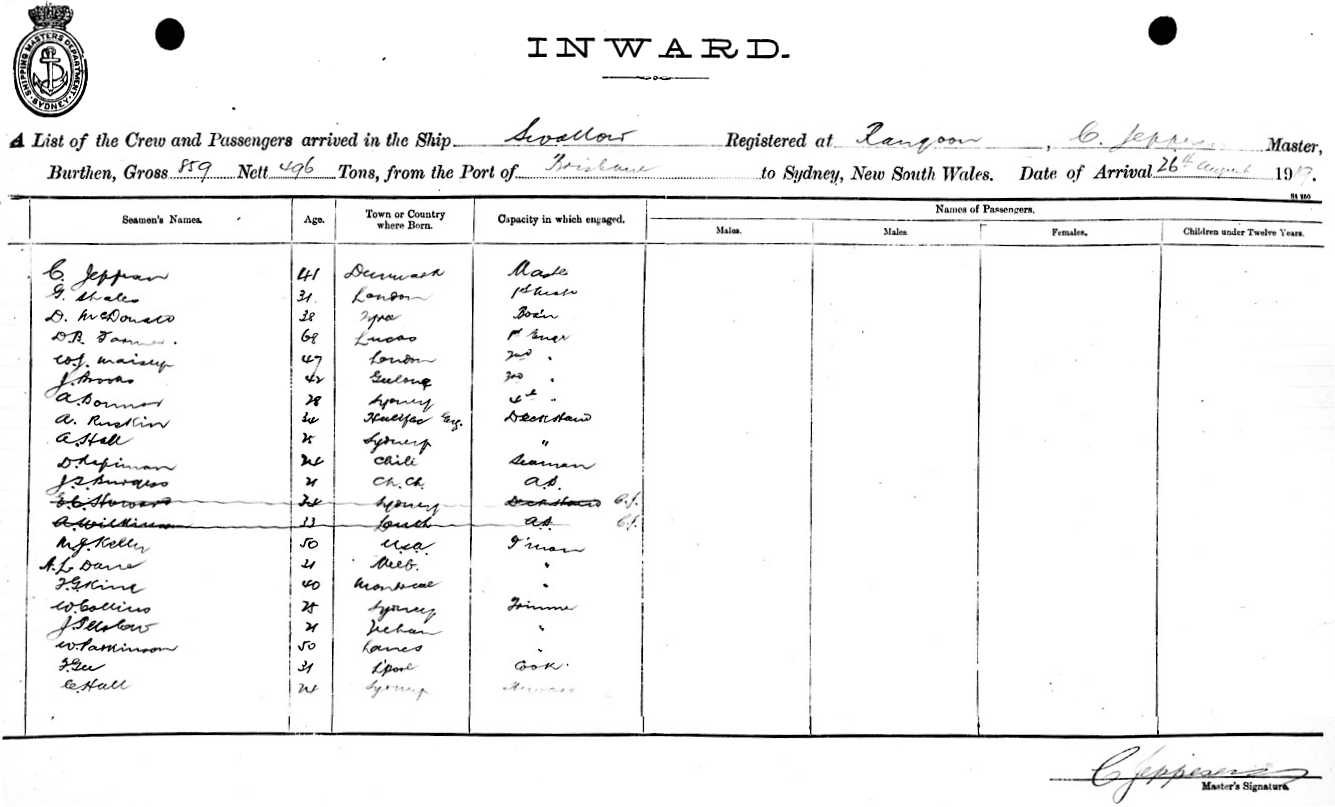 SHIPPING MASTERS DEPARTMENT. SYDNEY
INWARD.
A List of the Crew and Passengers arrived in the Ship Swallow Registered at Rangoon, C. Jeppesen Master,
Burthen, Gross 859 Nett 496 Tons, from the Port of Brisbane to Sydney, New South Wales. Date of Arrival 26th August 1917.
Seamen's Names. Age. Town or Country where Born. Capacity in which engaged. Names of Passengers.
Males. Males Females. Children under Twelve Years.
C. Jeppesen 41 Denmark Master
G. Shales 31 London 1st Mate
D. McDonald 38 Bos'n
D.B. 68 1st Engr
W.J. 47 London 2nd "
J. Brooks 42 3rd "
A. 28 Sydney 4th "
A. Ruskin 34 Halifax Eng. Deckhand
A. Hall 25 Sydney "
D. 24 Chili Seaman
J.S. Burgess 21 Ch.Ch. A.B.
24 Sydney Deckhand C.J.
A. Wilkinson 33 A.B. C.J.
M.J. Kelly 50 U.S.A. F'man
21 Melb. "
40 Montreal "
W. Collins 25 Sydney Trimmer
J. 21 Zeehan "
W. Parkinson 50 Lancs "
F. Gee 31 L'pool Cook.
C. Hall 24 Sydney
C Jeppesen
Master's Signature.